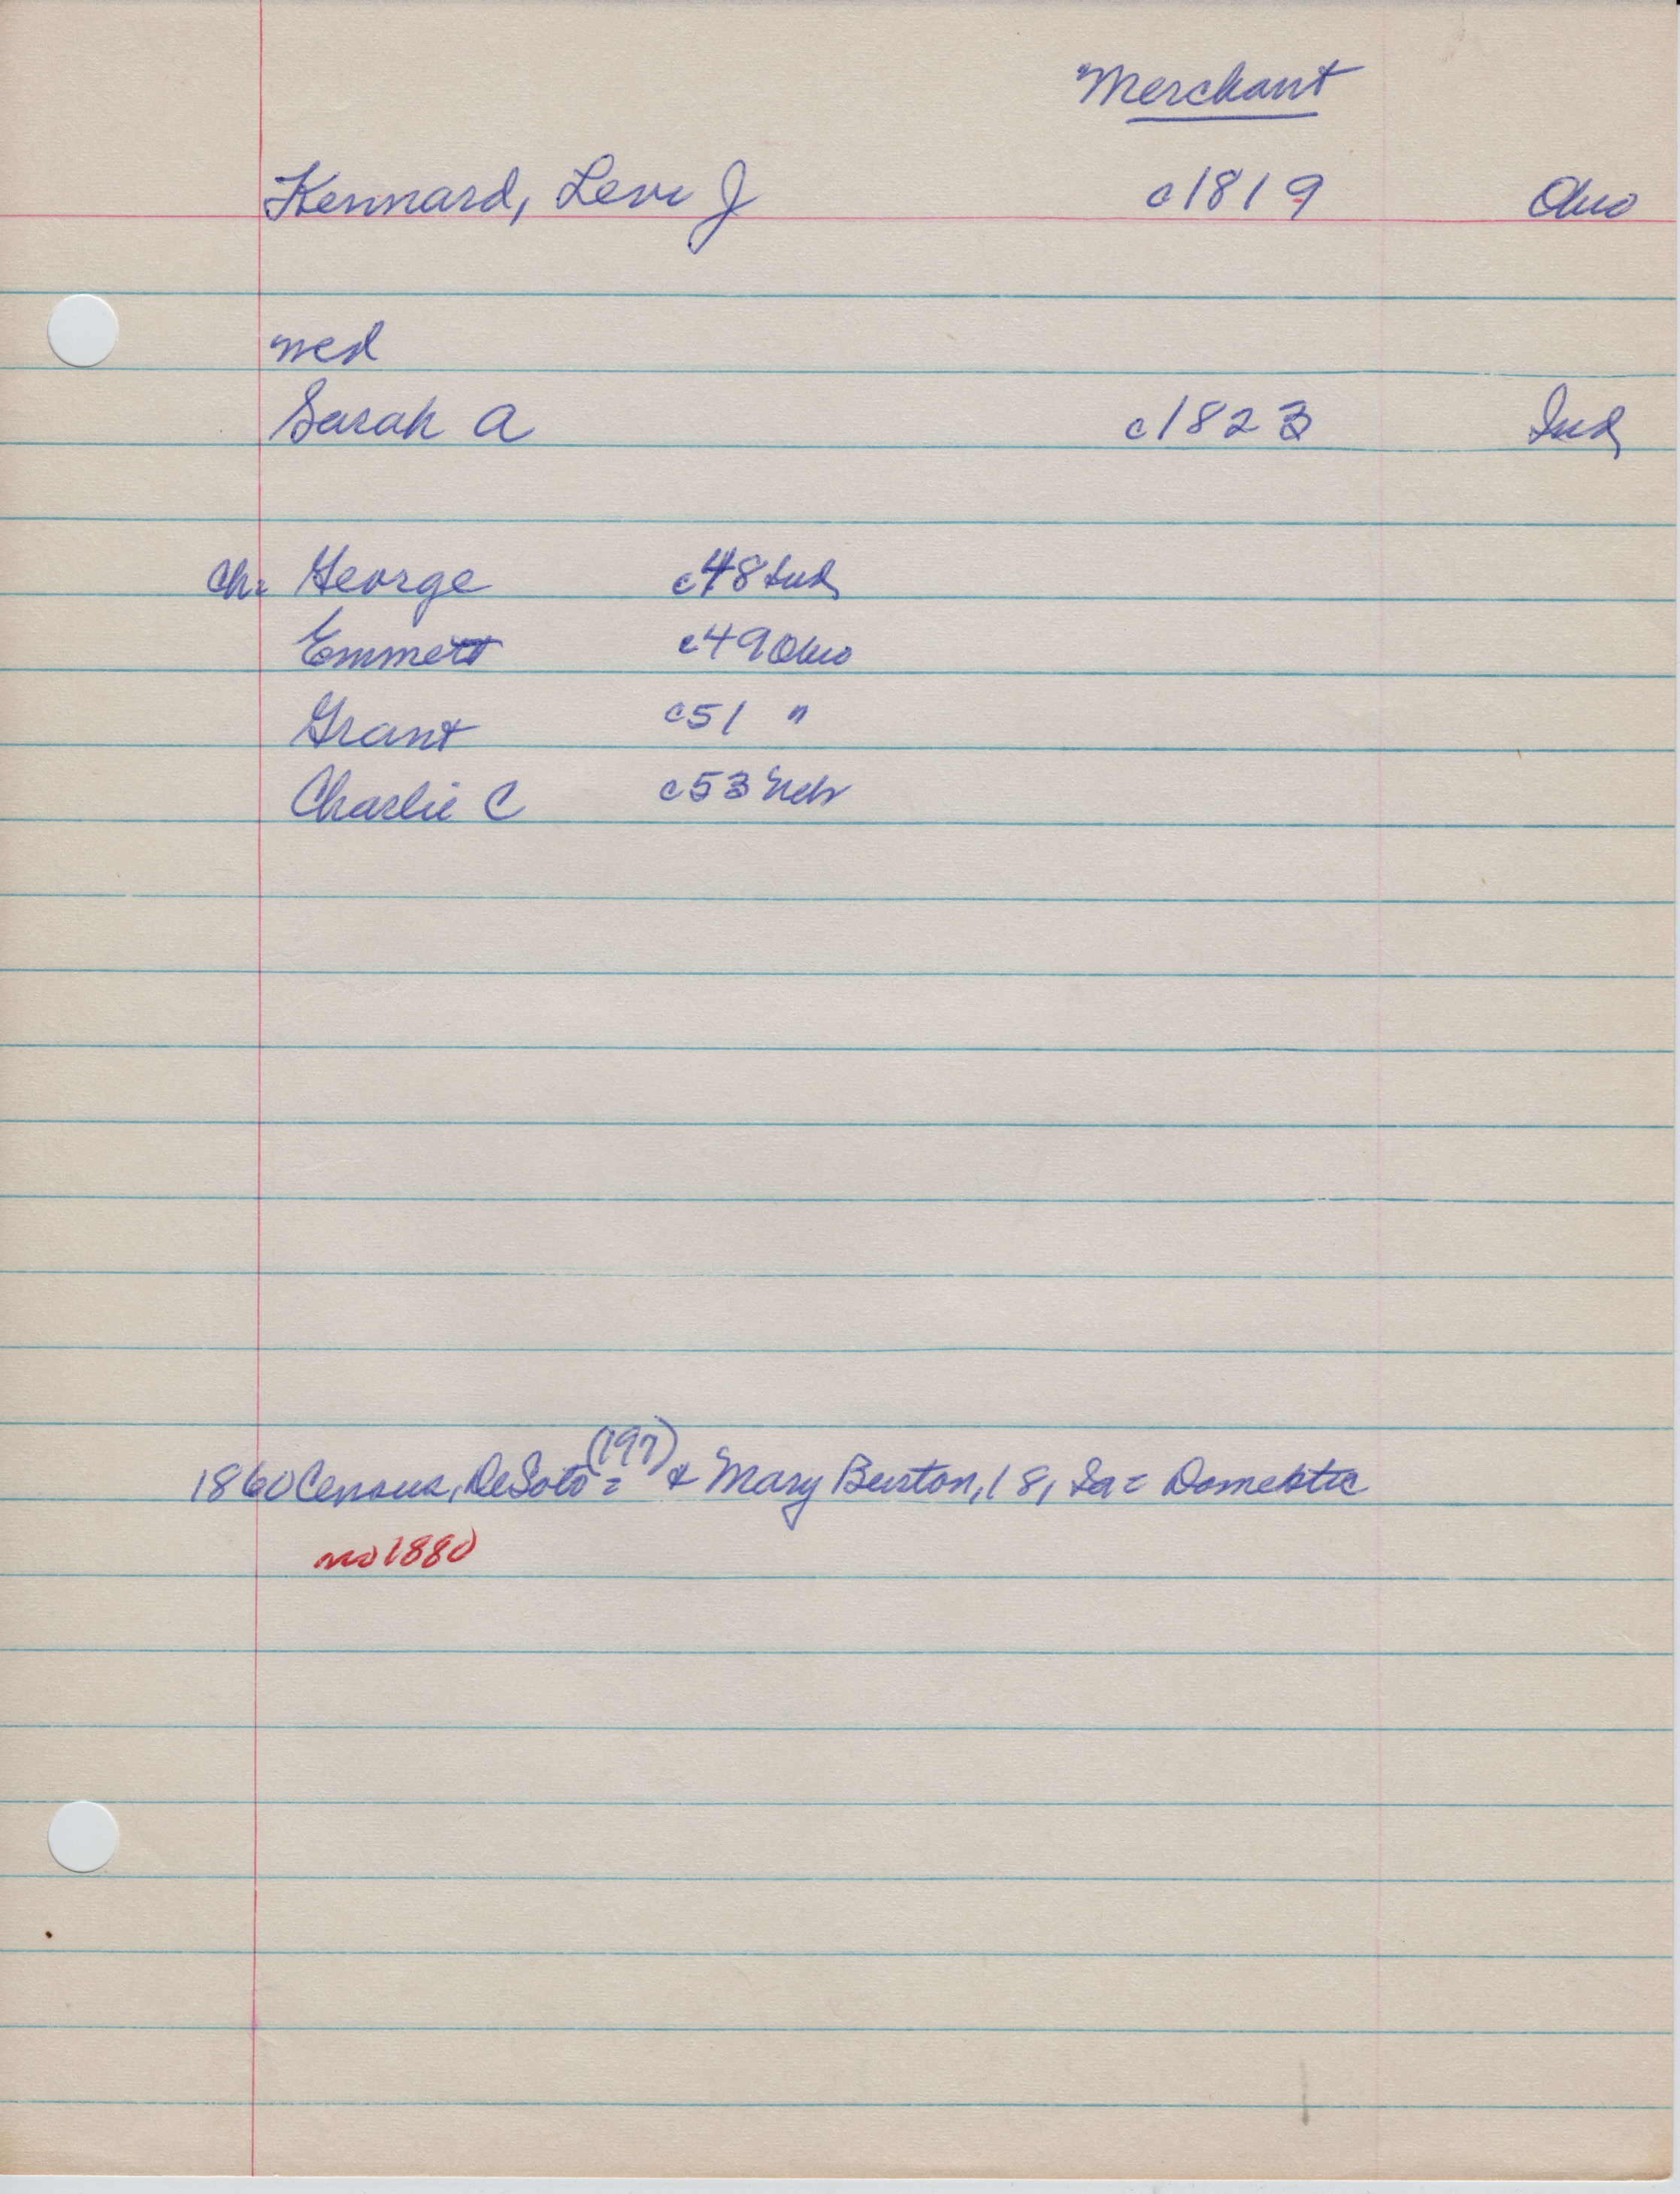 Merchant
Kennard, Levi J c1819 Ohio
med
Sarah A c1823 Ind
Ch: George c48 Ind
Emmett c49 Ohio
Grant c51 "
Charlie C c53 Neb
(197)
1860 Census, DeSoto = & Mary Burton, 18, Ia = Domestic
no 1880